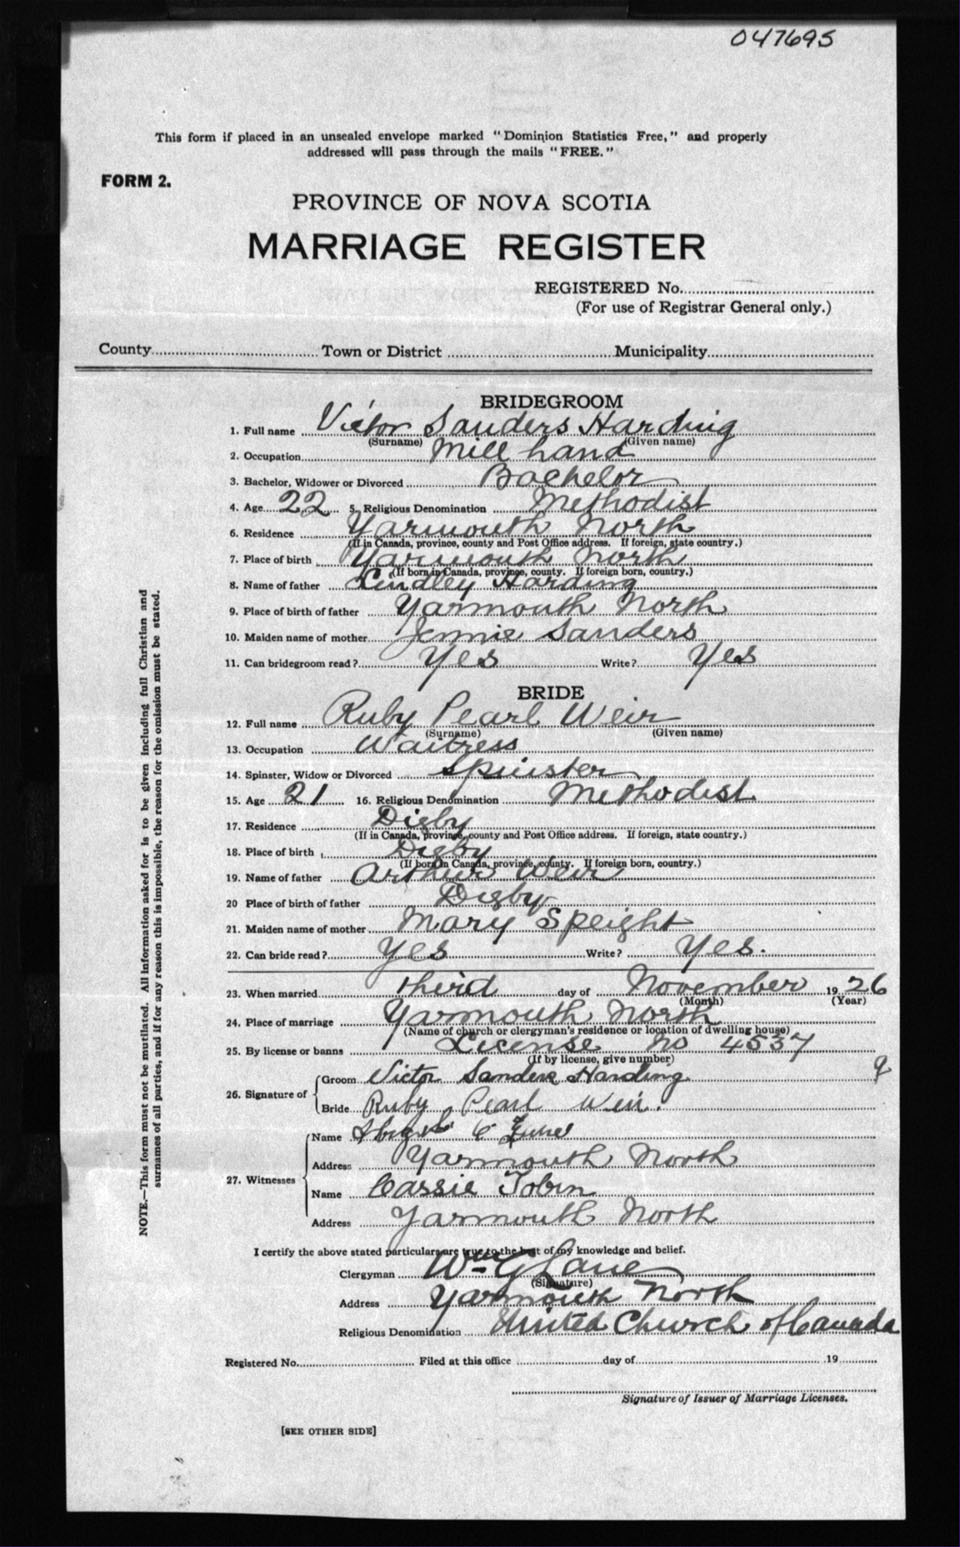 047695
This form if placed in an unsealed envelope marked "Dominion Statistics Free," and properly
addressed will pass through the mails "FREE."
FORM 2.
PROVINCE OF NOVA SCOTIA
MARRIAGE REGISTER
REGISTERED No.
(For use of Registrar General only.)
County Town or District Municipality
BRIDEGROOM
1. Full name Victor Sanders Harding
(Surname) (Given name)
2. Occupation Mill hand
3. Bachelor, Widower or Divorced Bachelor
4. Age 22 5. Religious Denomination Methodist
6. Residence Yarmouth North
(If in Canada, province, county and Post Office address. If foreign, state country.)
7. Place of birth Yarmouth North
(If born in Canada, province, county. If foreign born, country.)
8. Name of father Lindley Harding
9. Place of birth of father Yarmouth North
10. Maiden name of mother Jennie Sanders
11. Can bridegroom read? Yes Write? Yes
BRIDE
12. Full name Ruby Pearl Weir
(Surname) (Given name)
13. Occupation Waitress
14. Spinster, Widow or Divorced Spinster
15. Age 21 16. Religious Denomination Methodist
17. Residence Digby
(If in Canada, province, county and Post Office address. If foreign, state country.)
18. Place of birth Digby
(If born in Canada, province, county. If foreign born, country.)
19. Name of father Arthur Weir
20 Place of birth of father Digby
21. Maiden name of mother Mary Speight
22. Can bride read? Yes Write? Yes.
23. When married third day of November 1926
(Month) (Year)
24. Place of marriage Yarmouth North
(Name of church or clergyman's residence or location of dwelling house)
25. By license or banns License No 4537
(If by license, give number)
26. Signature of
Groom Victor Sanders Harding
Bride Ruby Pearl Weir.
27. Witnesses
Name
Address Yarmouth North
Name Cassie Tobin
Address Yarmouth North
I certify the above stated particulars are true to the best of my knowledge and belief.
Clergyman Wm G Lane
(Signature)
Address Yarmouth North
Religious Denomination United Church of Canada
Registered No. Filed at this office day of 19
Signature of Issuer of Marriage Licenses.
[SEE OTHER SIDE]
NOTE.—This form must not be mutilated. All information asked for is to be given including full Christian and
surnames of all parties, and if for any reason this is impossible, the reason for the omission must be stated.